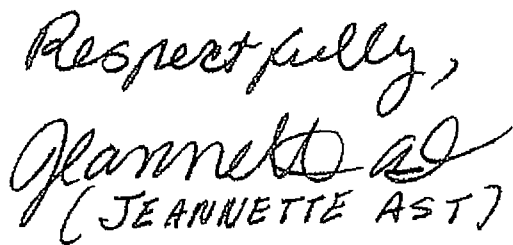 Respectfully,
Jeannette Ast
(JEANNETTE AST)